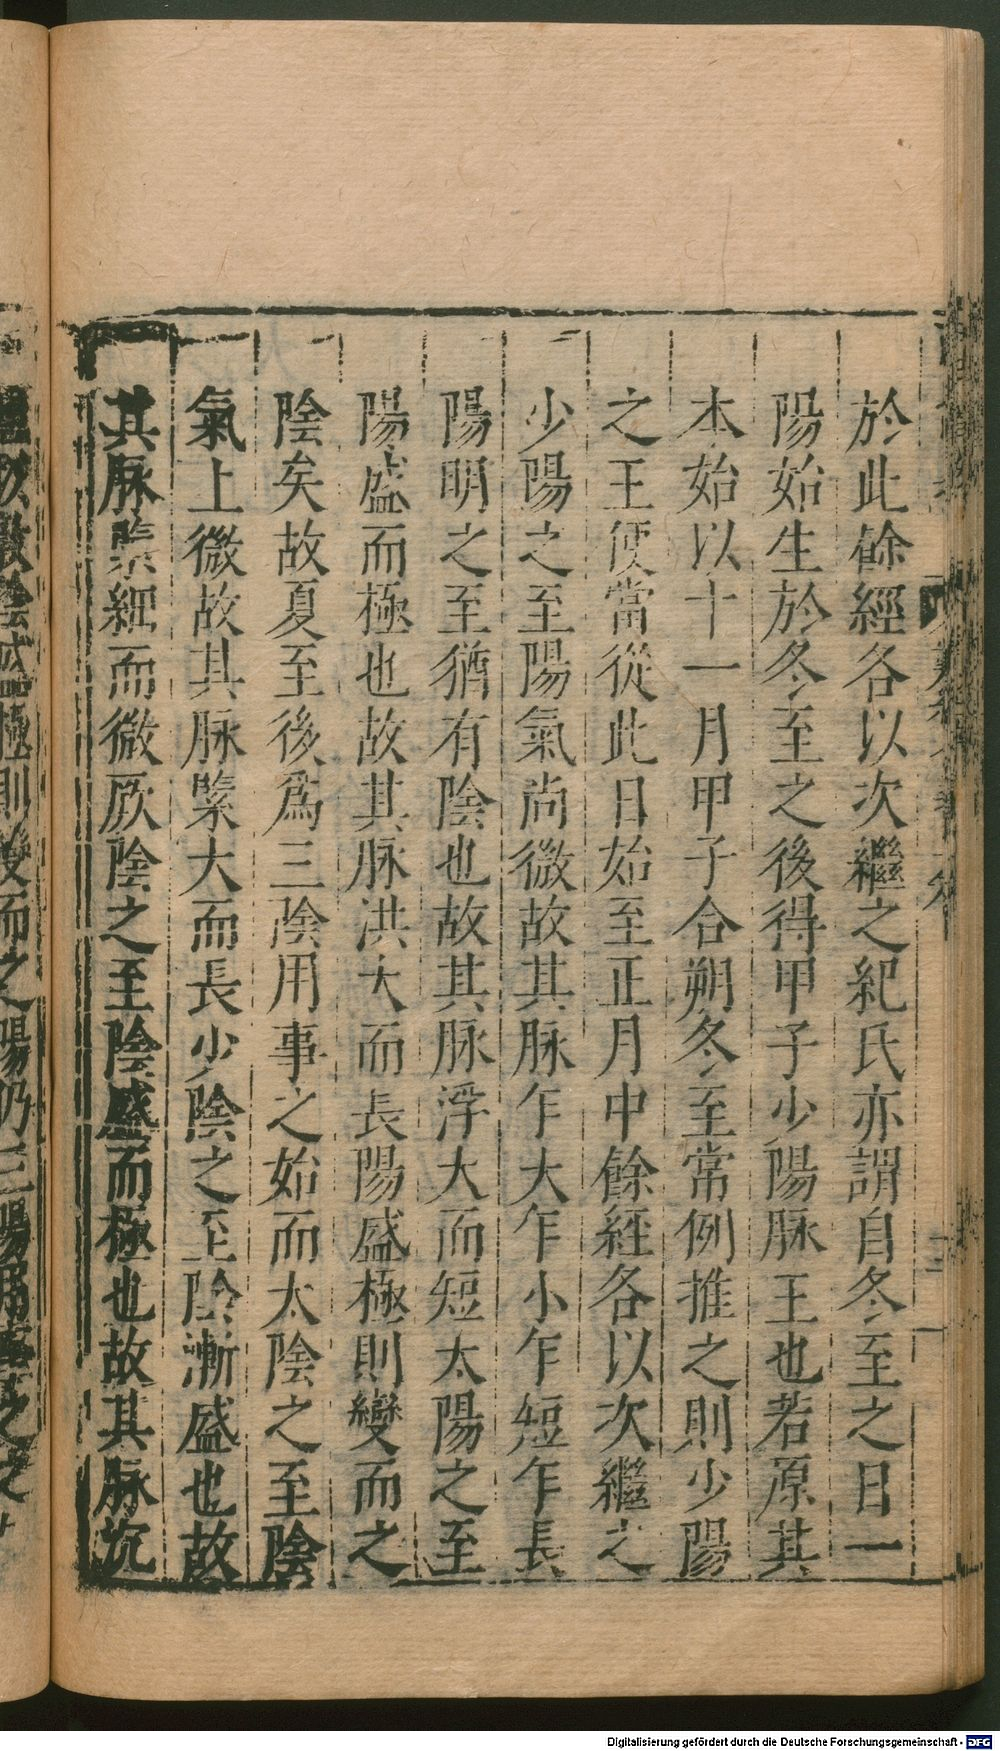 於此餘經各以次繼之紀氏亦謂自冬至之日一
陽始生於冬至之後得甲子少陽脉王也若原其
本始以十一月甲子合朔冬至常例推之則少陽
之王便當從此日始至正月中餘經各以次繼之
少陽之至陽氣尚微故其脉乍大乍小乍短乍長
陽明之至猶有陰也故其脉浮大而短太陽之至
陽盛而極也故其脉洪大而長陽盛極則變而之
陰矣故夏至後爲三陰用事之始而太陰之至陰
氣上微故其脉緊大而長少陰之至陰漸盛也故
其脉緊細而微厥陰之至陰盛而極也故其脉沉
極則變而之陽仍三陽
Digitalisierung gefördert durch die Deutsche Forschungsgemeinschaft - DFG